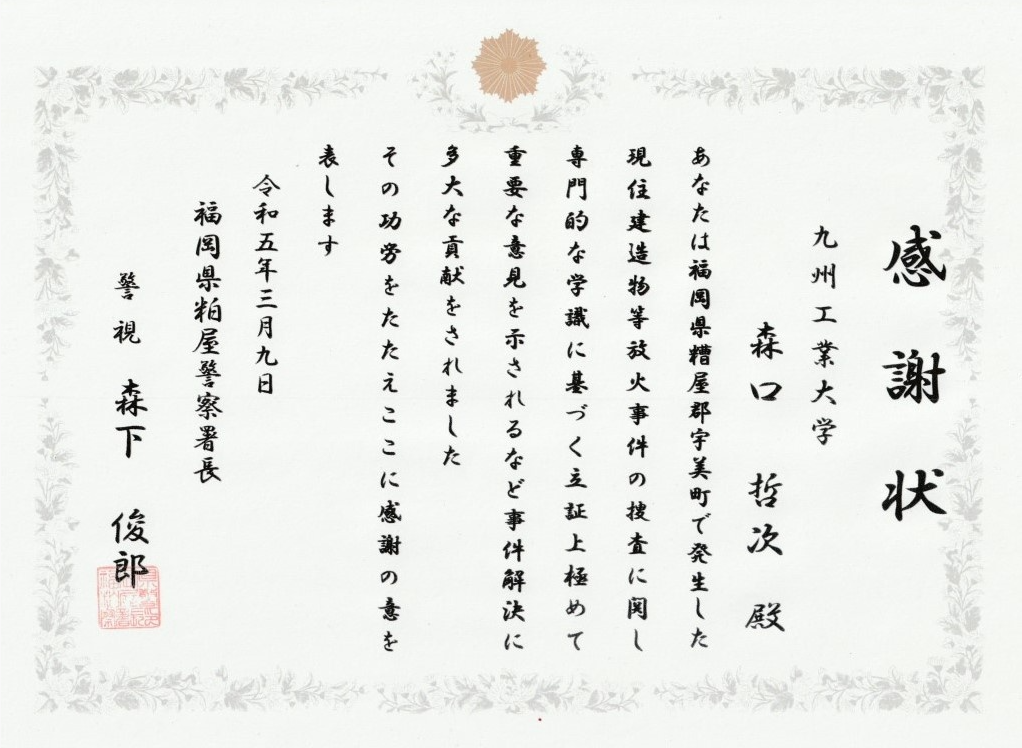 感謝状
九州工業大学
森口哲次殿
あなたは福岡県糟屋郡宇美町で発生した
現住建造物等放火事件の捜査に関し
専門的な学識に基づく立証上極めて
重要な意見を示されるなど事件解決に
多大な貢献をされました
その功労をたたえここに感謝の意を
表します
令和五年三月九日
福岡県粕屋警察署長
警視 森下 俊郎